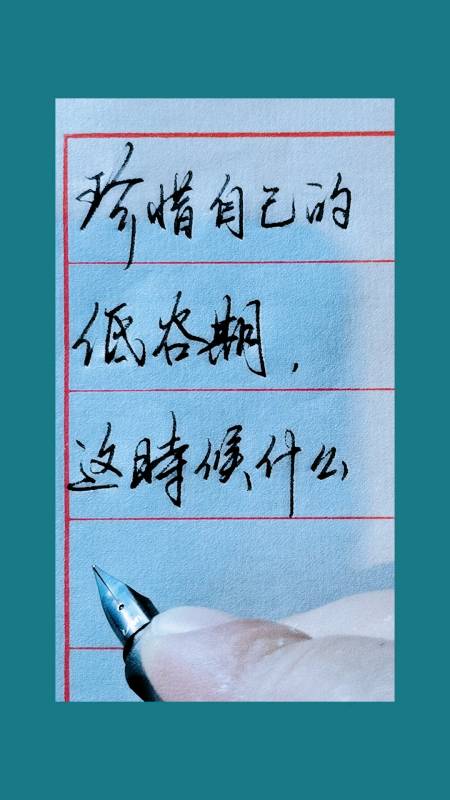 珍惜自己的
低谷期，
这時候什么